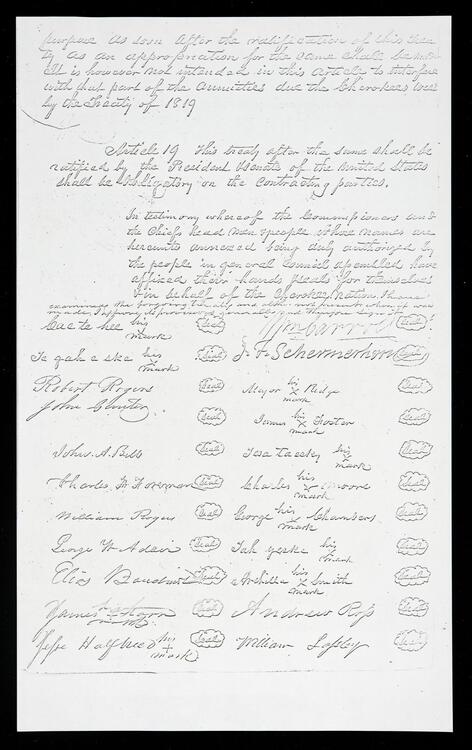 purpose as soon after the ratification of this trea
ty as an appropriation for the same shall be made
It is however not intended in this article to interfere
with that part of the annuities due the Cherokees west
by the treaty of 1819
Article 19 This treaty after the same shall be
ratified by the President & Senate of the United States
shall be obligatory on the contracting parties.
In testimony whereof the commissioners and
the Chiefs head men & people whose names are
hereunto annexed being duly authorized by
the people in general council assembled have
affixed their hands & seals for themselves
& in behalf of the Cherokee Nation. I have
examined the foregoing treaty and altho not present when it was
made, I approve its provisions and therefore sign it
Wm Carroll Seal
Cae te hee his x mark Seal
J. F. Schermerhorn Seal
Te gah e ske his x mark Seal
Major his x mark Ridge Seal
Robert Rogers Seal
John Gunter Seal
James his x mark Foster Seal
John A. Bell Seal
Tesa taesky his x mark Seal
Charles F Foreman Seal
Charles his x mark Moore Seal
William Rogers Seal
George his x mark Chambers Seal
George W Adair Seal
Tah yeske his x mark Seal
Elias Boudinot Seal
Archilla his x mark Smith Seal
James Seal
Andrew Ross Seal
Jesse Halfbreed his x mark Seal
William Lasley Seal